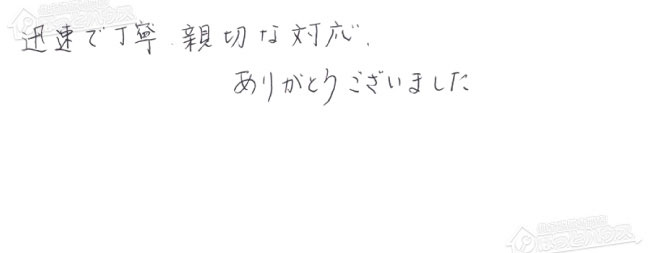 迅速で丁寧、親切な対応、
ありがとうございました